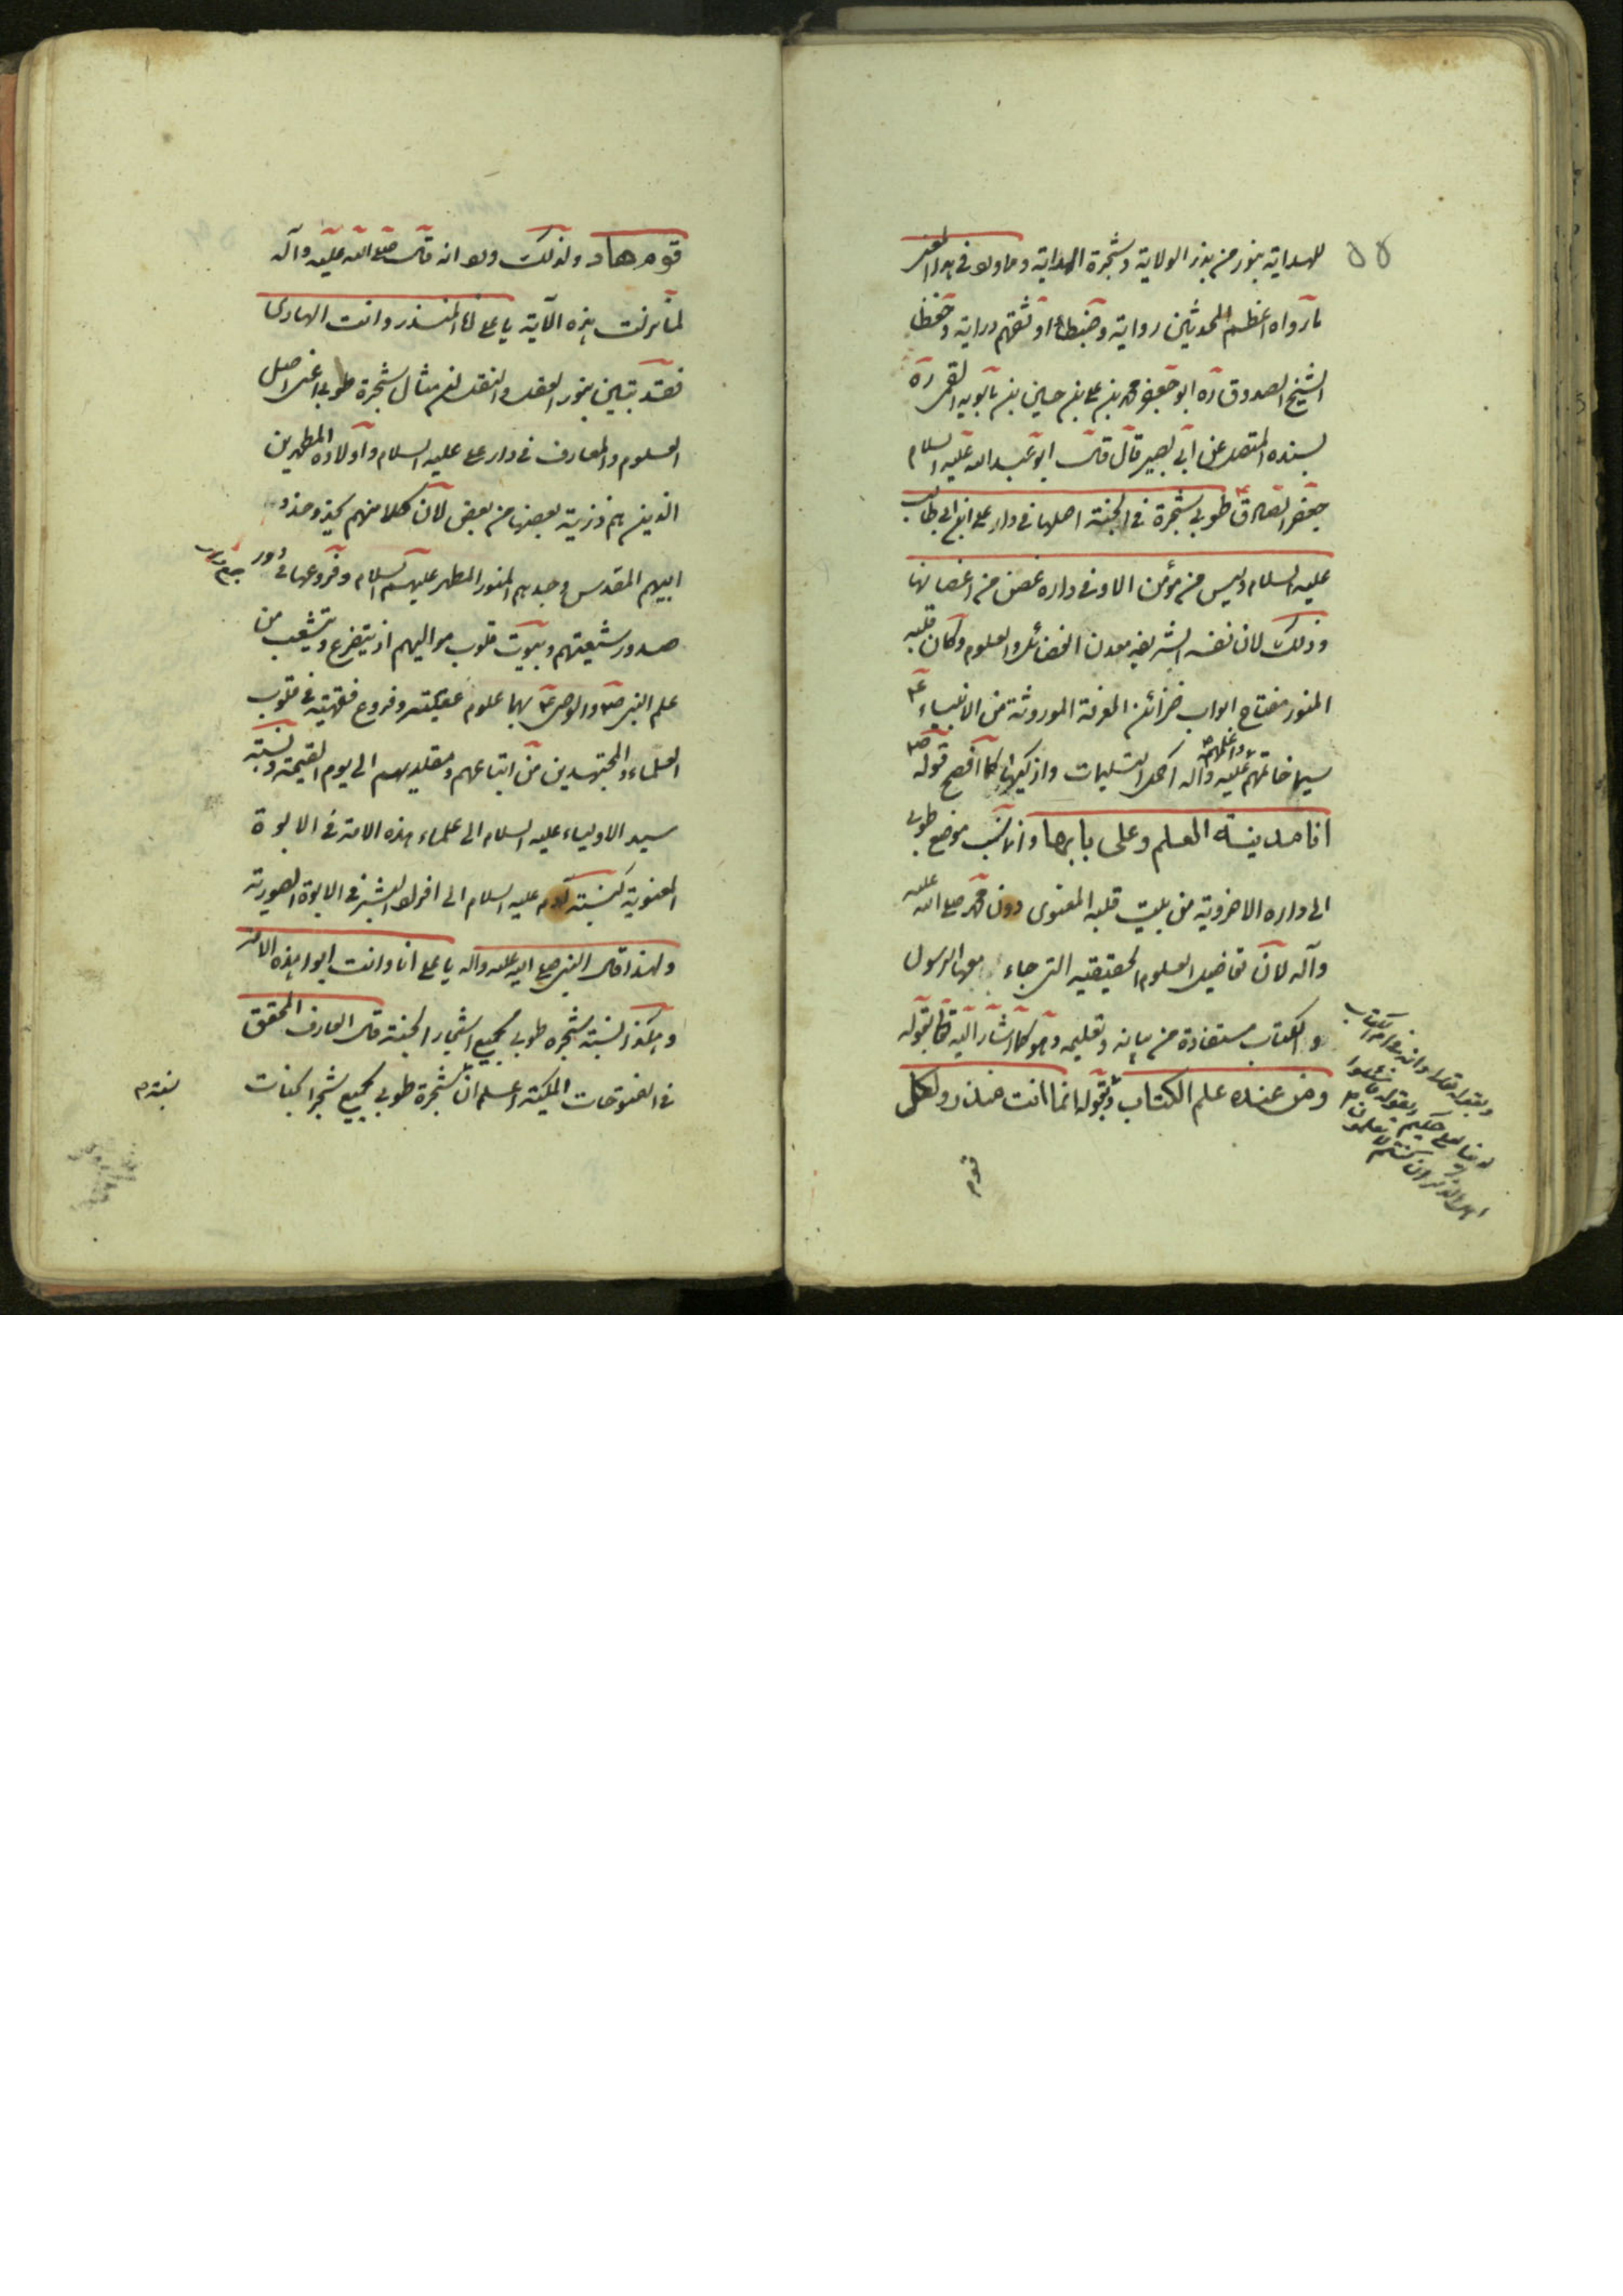 للهداية بنور من بذر الولاية وشجرة الهداية ومما ورد في هذا المعنى
ما رواه اعظم المحدثين رواية وضبطا واوثقهم دراية وحفظا
الشيخ الصدوق ره ابو جعفر محمد بن علي بن حسين بن بابويه القمي ره
بسنده المتصل عن ابي بصير قال قال ابو عبد الله عليه السلام
جعفر الصادق ع طوبى شجرة في الجنة اصلها في دار علي ابن ابي طالب
عليه السلام وليس من مؤمن الا وفي داره غصن من اغصانها
وذلك لان نفسه الشريفة معدن الفضائل والعلوم وكان قلبه
المنور مفتاح ابواب خزائن المعرفة الموروثة من الانبياء ع
سيما خاتمهم واعلمهم عليه وآله اكمل التسليمات وازكيها كما افصح قوله ص
انا مدينة العلم وعلى بابها وانما نسب موضع طوبى
الى داره الاخروية من بيت قلبه المعنوى دون محمد صلى الله عليه
وآله لان تفاصيل العلوم الحقيقية التي جاء بها الرسول
والكتاب مستفادة من بيانه وتعليمه وهو كما اشار اليه تعالى بقوله
ومن عنده علم الكتاب وبقوله انما انت منذر ولكل
وبقوله تعالى وانه في ام الكتاب
لدينا لعلي حكيم وبقوله فاسئلوا
اهل الذكر ان كنتم لا تعلمون
قوم
قوم هاد ولذلك ورد انه قال صلى الله عليه وآله
لما نزلت هذه الآية يا علي انا المنذر وانت الهادى
فقد تبين بنور العقل والنقل ان مثال شجرة طوبى اعنى اصل
العلوم والمعارف في دار علي عليه السلام واولاده المطهرين
الذين هم ذرية بعضها من بعض لان كلا منهم يحذو حذو
ابيهم المقدس وجدهم المنور المطهر عليهم السلام وفروعها في دور
صدور شيعتهم وبيوت قلوب مواليهم اذ يتفرع ويتشعب من
علم النبي ص والوصي ع بهما علوم عقلية وفروع فقهية في قلوب
العلماء والمجتهدين من اتباعهم ومقلديهم الى يوم القيمة ونسبة
سيد الاولياء عليه السلام الى علماء هذه الامة في الابوة
المعنوية كنسبة آدم عليه السلام الى افراد البشر في الابوة الصورية
ولهذا قال النبي صلى الله عليه وآله يا علي انا وانت ابوا هذه الامة
وهكذا نسبة شجرة طوبى لجميع اشجار الجنة قال العارف المحقق
في الفتوحات المكية اعلم ان شجرة طوبى لجميع شجر الجنات